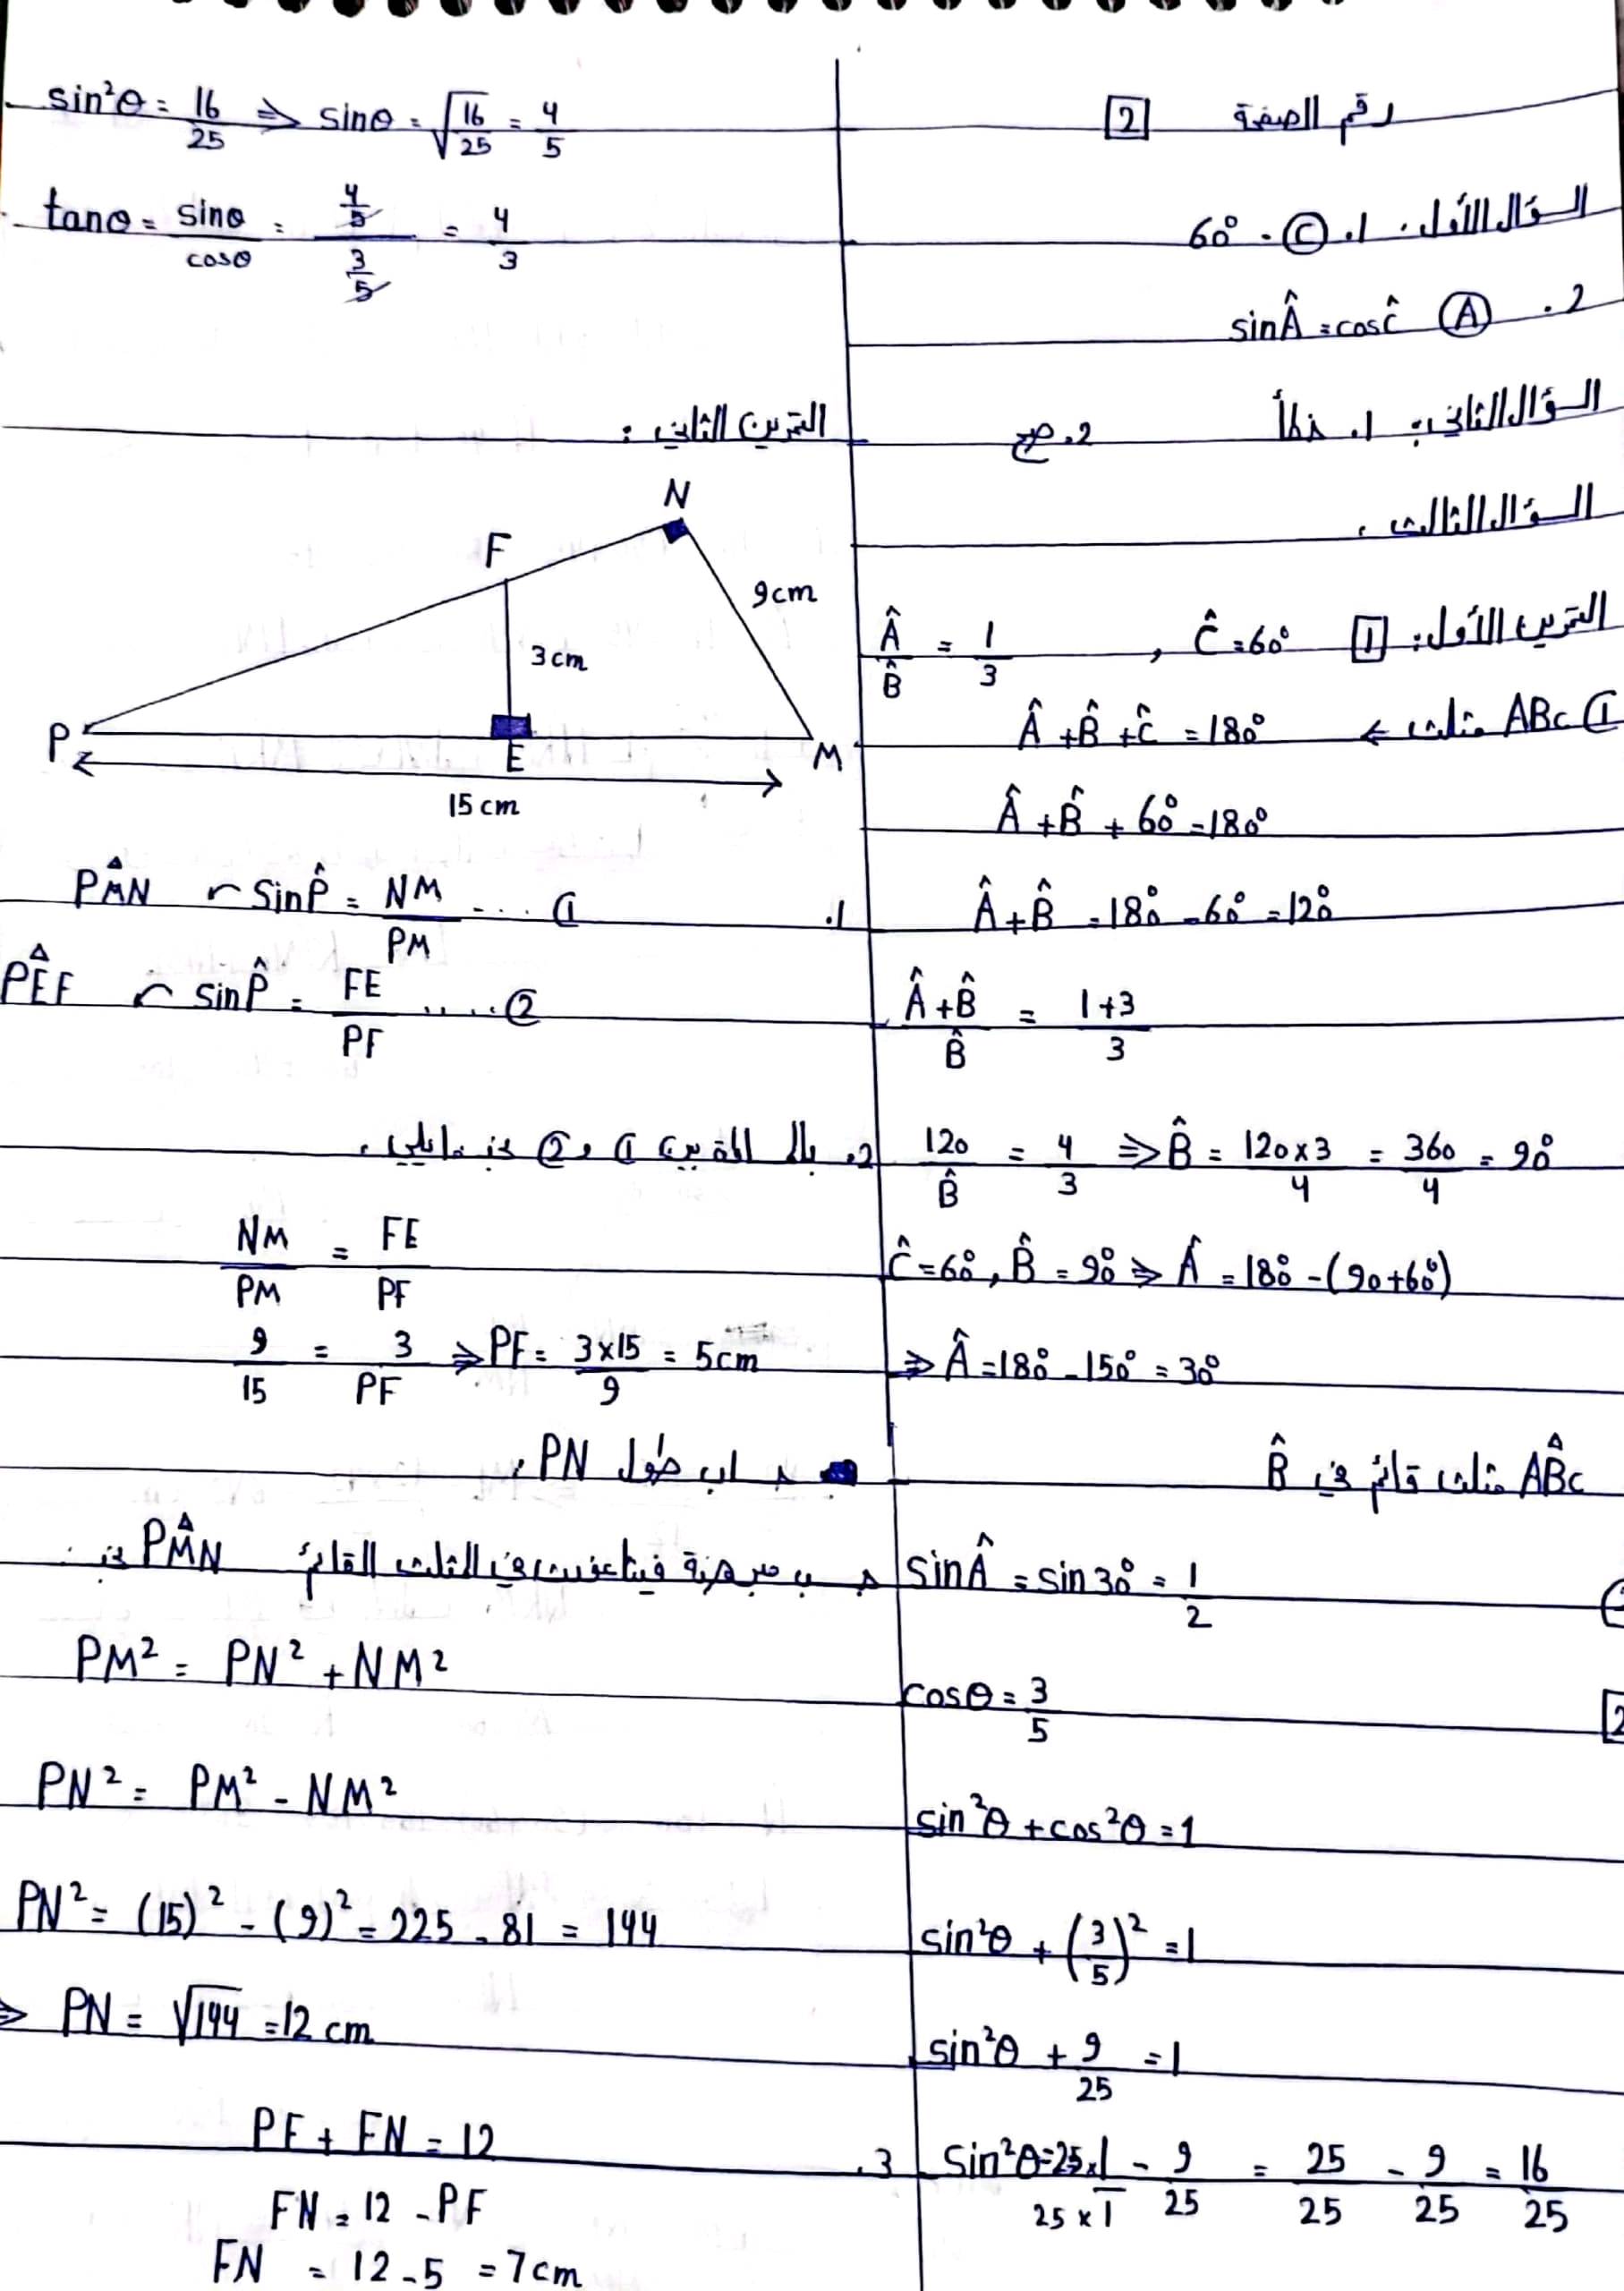 رقم الصفحة 2
السؤال الأول: 1. C - 60°
2. A sin Â = cos Ĉ
السؤال الثاني: 1. خطأ 2. صح
السؤال الثالث:
التمرين الأول: 1 Ĉ = 60° , Â/B̂ = 1/3
1 ABC مثلث ← Â + B̂ + Ĉ = 180°
Â + B̂ + 60° = 180°
Â + B̂ = 180° - 60° = 120°
(Â + B̂)/B̂ = (1+3)/3
120/B̂ = 4/3 ⇒ B̂ = (120×3)/4 = 360/4 = 90°
Ĉ = 60°, B̂ = 90° ⇒ Â = 180° - (90+60°)
⇒ Â = 180° - 150° = 30°
ABC مثلث قائم في B̂
sin Â = sin 30° = 1/2
2 cosθ = 3/5
sin²θ + cos²θ = 1
sin²θ + (3/5)² = 1
sin²θ + 9/25 = 1
sin²θ = (25×1)/(25×1) - 9/25 = 25/25 - 9/25 = 16/25
sin²θ = 16/25 ⇒ sinθ = √(16/25) = 4/5
tanθ = sinθ/cosθ = (4/5)/(3/5) = 4/3
التمرين الثاني:
N
F
9cm
3cm
P E M
15 cm
1. PMN sin P̂ = NM/PM .... 1
PEF sin P̂ = FE/PF ..... 2
2. 1 و 2
NM/PM = FE/PF
9/15 = 3/PF ⇒ PF = (3×15)/9 = 5cm
حساب طول PN:
حسب مبرهنة فيثاغورث في المثلث القائم PMN
PM² = PN² + NM²
PN² = PM² - NM²
PN² = (15)² - (9)² = 225 - 81 = 144
⇒ PN = √144 = 12 cm
3. PF + FN = 12
FN = 12 - PF
FN = 12 - 5 = 7cm